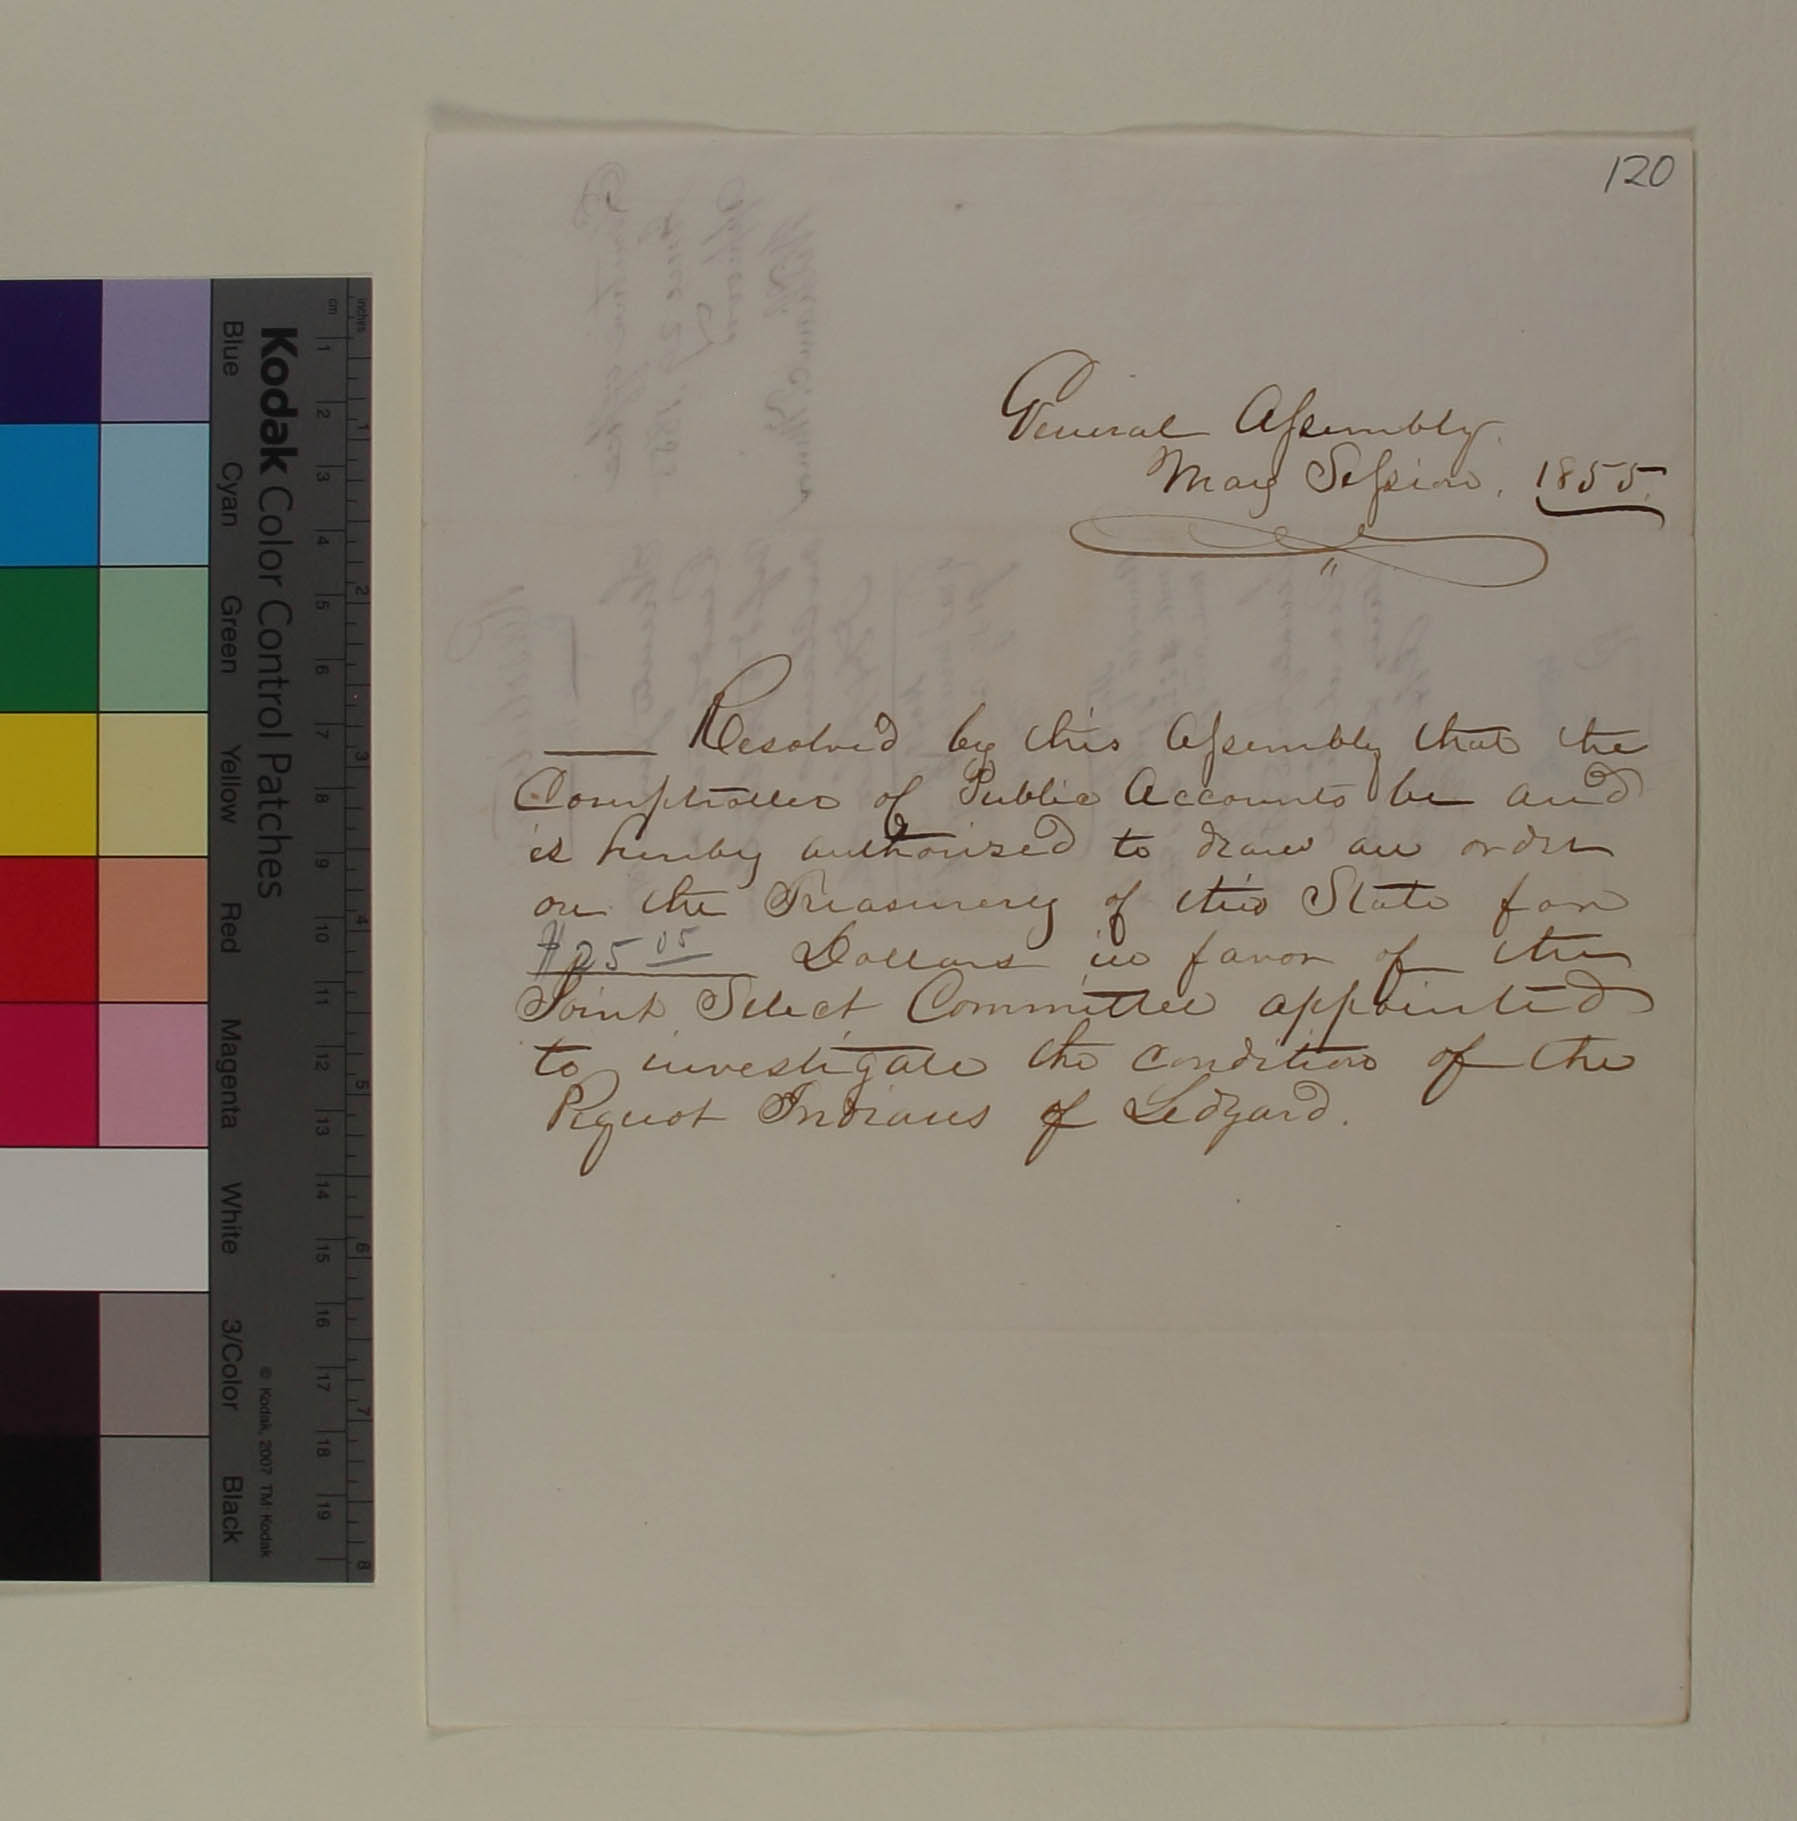 120
General Assembly.
May Session. 1855.
Resolved by this Assembly that the
Comptroller of Public Accounts be and
is hereby authorized to draw an order
on the Treasurery of this State for
$25 05 Dollars in favor of the
Joint Select Committee appointed
to investigate the condition of the
Pequot Indians of Ledyard.
Kodak Color Control Patches
Blue Cyan Green Yellow Red Magenta White 3/Color Black
© Kodak, 2007 TM: Kodak
cm 1 2 3 4 5 6 7 8 9 10 11 12 13 14 15 16 17 18 19
inches 1 2 3 4 5 6 7 8